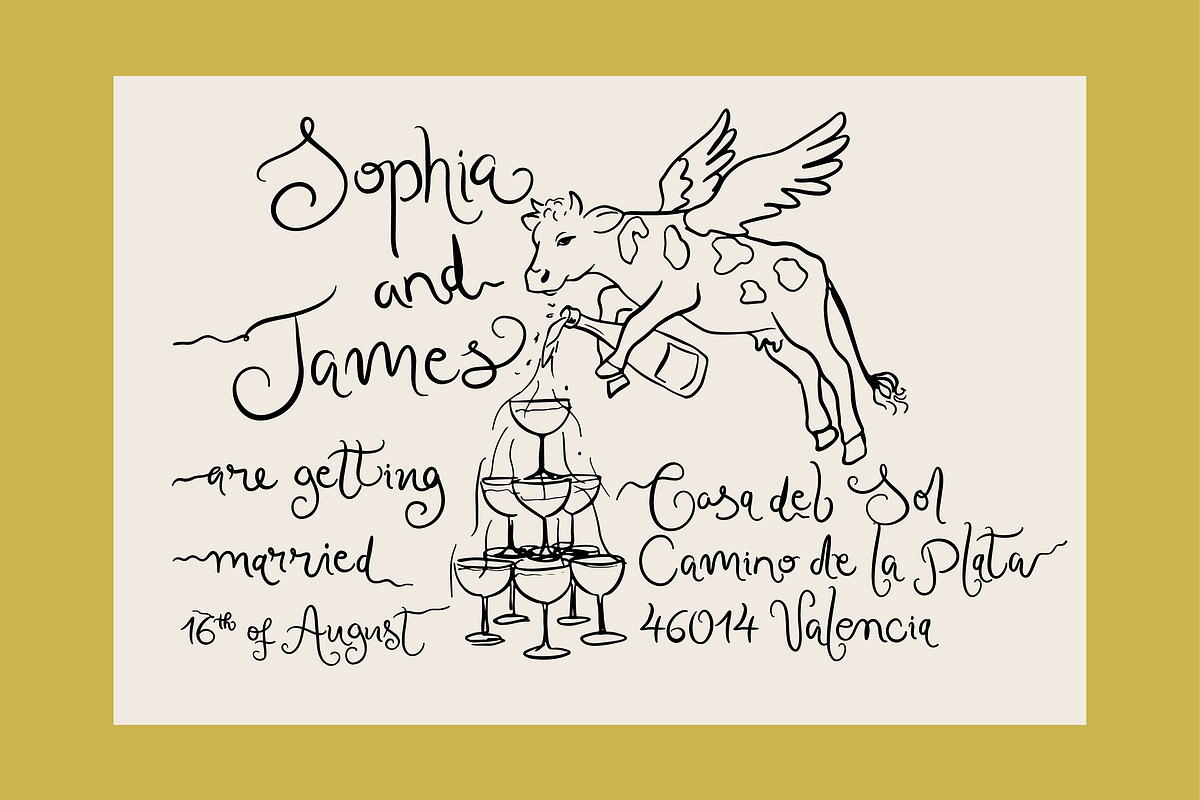 Sophia
and
James
are getting
married
16th of August
Casa del Sol
Camino de la Plata
46014 Valencia